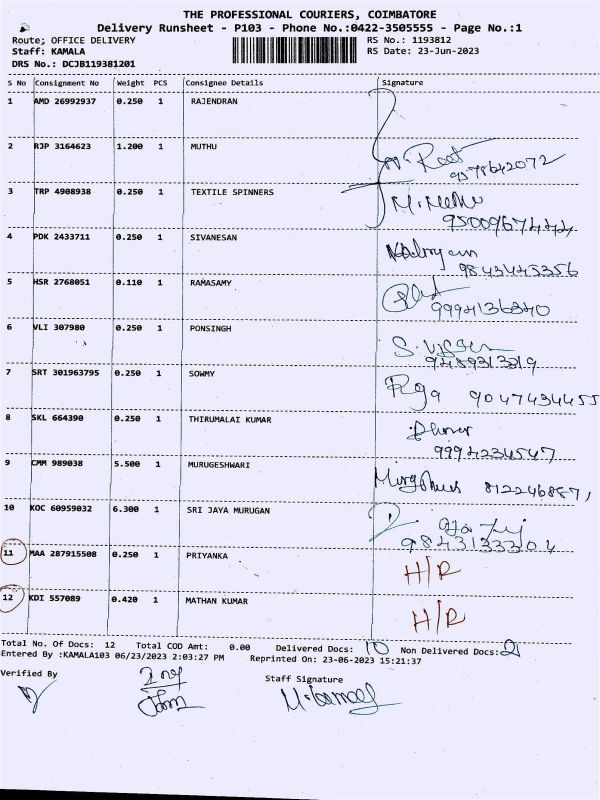 THE PROFESSIONAL COURIERS, COIMBATORE
Delivery Runsheet - P103 - Phone No.:0422-3505555 - Page No.:1
Route; OFFICE DELIVERY RS No.: 1193812
Staff: KAMALA RS Date: 23-Jun-2023
DRS No.: DCJB119381201
S No Consignment No Weight PCS Consignee Details Signature
1 AMD 26992937 0.250 1 RAJENDRAN
2 RJP 3164623 1.200 1 MUTHU
9578642072
3 TRP 4908938 0.250 1 TEXTILE SPINNERS
4 PDK 2433711 0.250 1 SIVANESAN
9843445356
5 HSR 2768051 0.110 1 RAMASAMY
9994136340
6 VLI 307980 0.250 1 PONSINGH
7 SRT 301963795 0.250 1 SOWMY
9047434455
8 SKL 664390 0.250 1 THIRUMALAI KUMAR
9994234547
9 CMM 989038 5.500 1 MURUGESHWARI
10 KOC 60959032 6.300 1 SRI JAYA MURUGAN
11 MAA 287915508 0.250 1 PRIYANKA H/R
12 KDI 557089 0.420 1 MATHAN KUMAR H/R
Total No. Of Docs: 12 Total COD Amt: 0.00 Delivered Docs: 10 Non Delivered Docs: 2
Entered By :KAMALA103 06/23/2023 2:03:27 PM Reprinted On: 23-06-2023 15:21:37
Verified By Staff Signature